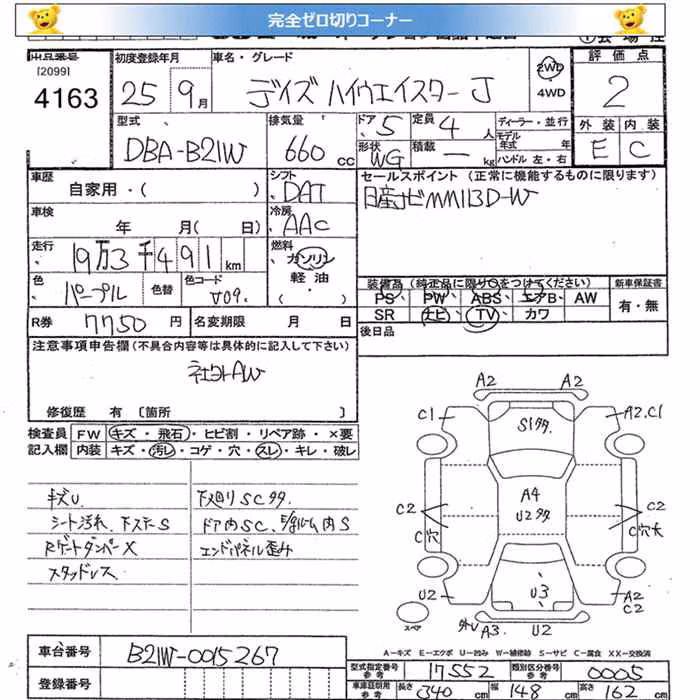 完全ゼロ切りコーナー
出品番号
[2099]
4163
初度登録年月
25 9月
車名・グレード
デイズ ハイウエイスター J
2WD
4WD
評価点
2
型式
DBA-B21W
排気量
660 cc
ドア 5
定員 4 人
ディーラー・並行
モデル年式 年
形状 WG
積載 ー kg
ハンドル 左・右
外装 内装
E C
車歴
自家用・( )
シフト
DAT
セールスポイント(正常に機能するものに限ります)
日産ナビMM113D-W
車検
年 月( 日)
冷房
AAC
走行
19万3千491km
燃料
ガソリン
軽油
・( )
色
パープル
色替
色コード
V09.
装備品(純正品に限り○をつけてください)
新車保証書
PS、PW、ABS、エアB・AW
有・無
SR ナビ、TV、カワ
R券 7750 円
名変期限 月 日
後日品
注意事項申告欄(不具合内容等は具体的に記入して下さい)
社外AW
修復歴 有 [箇所 ]
検査員
記入欄
FW キズ・飛石・ヒビ割・リペア跡・×要
内装 キズ・汚レ・コゲ・穴・スレ・キレ・破レ
キズU
下廻りSCタタ
シート汚れ、下ステーS
ドア内SC、E/gルーム内S
Rゲートダンパー×
エンドパネル歪み
スタッドレス
A2 A2
C1 A2,C1
S1タタ
A4
C2 U2タタ C2
C穴 C穴大
U2 U3 A2
C2
スペア
外U A3 U2
A−キズ E−エクボ U−凹み W−補修跡 S−サビ C−腐食 XX−交換済
車台番号 B21W-0015267
型式指定番号 参考 17552
類別区分番号 参考 0005
登録番号
車庫証明用 参考 長さ 340cm 幅 148cm 高さ 162cm